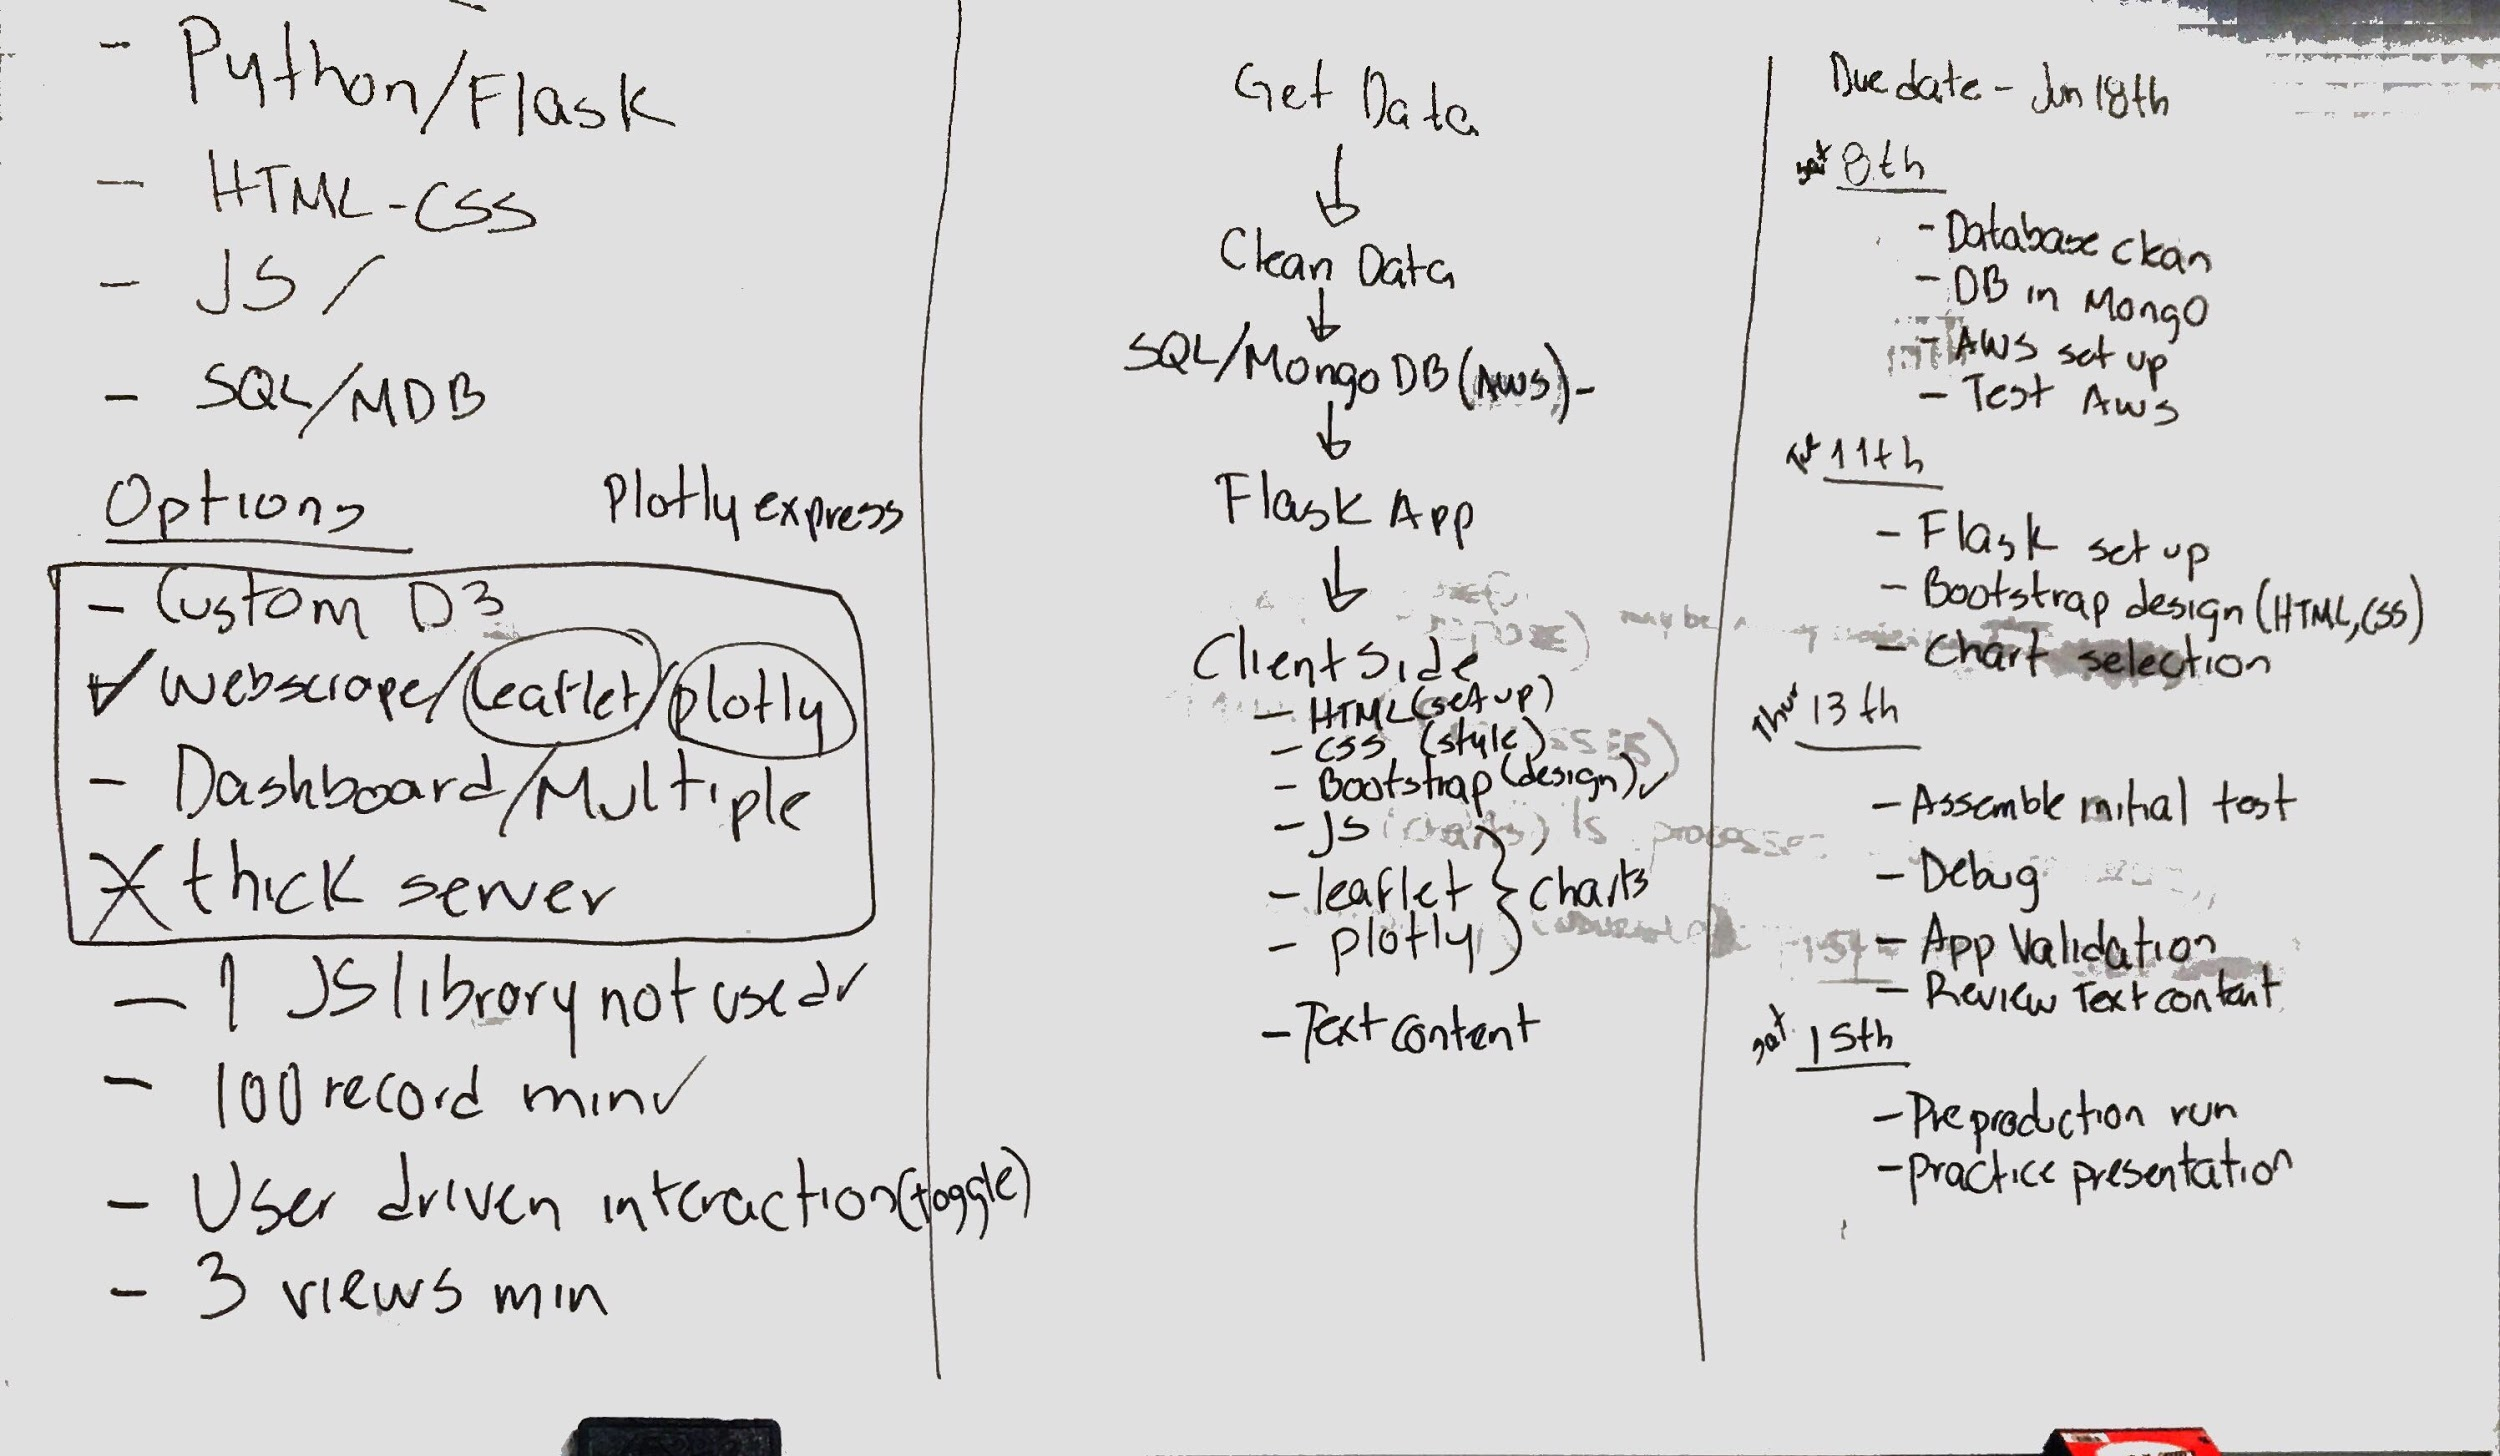 - Python/Flask
- HTML-CSS
- JS /
- SQL/MDB
Options
Plotly express
- Custom D3
✓ Webscrape/leaflet/plotly
- Dashboard/Multiple
X thick server
- 1 JS library not used ✓
- 100 record min ✓
- User driven interaction (toggle)
- 3 views min
Get Data
↓
Clean Data
↓
SQL/MongoDB (AWS) -
↓
Flask App
↓
Client Side
- HTML (set up)
- CSS (style)
- Bootstrap (design) ✓
- JS
- leaflet } charts
- plotly
- Text content
Due date - Jun 18th
sat 8th
- Database clean
- DB in Mongo
- AWS set up
- Test AWS
11th
- Flask set up
- Bootstrap design (HTML, CSS)
- Chart selection
Thur 13th
- Assemble initial test
- Debug
- App Validation
- Review Text content
sat. 15th
- Preproduction run
- practice presentation